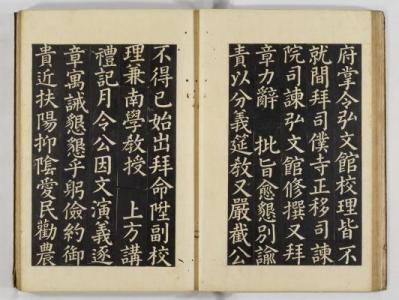 府掌令弘文館校理皆不
就間拜司僕寺正移司諫
院司諫弘文館修撰又拜
章力辭 批旨愈懇別諭
責以分義筵教又嚴截公
不得已始出拜命陞副校
理兼南學教授 上方講
禮記月令公因文演義逐
章寓誡懇懇乎躬儉約御
貴近扶陽抑陰愛民勸農